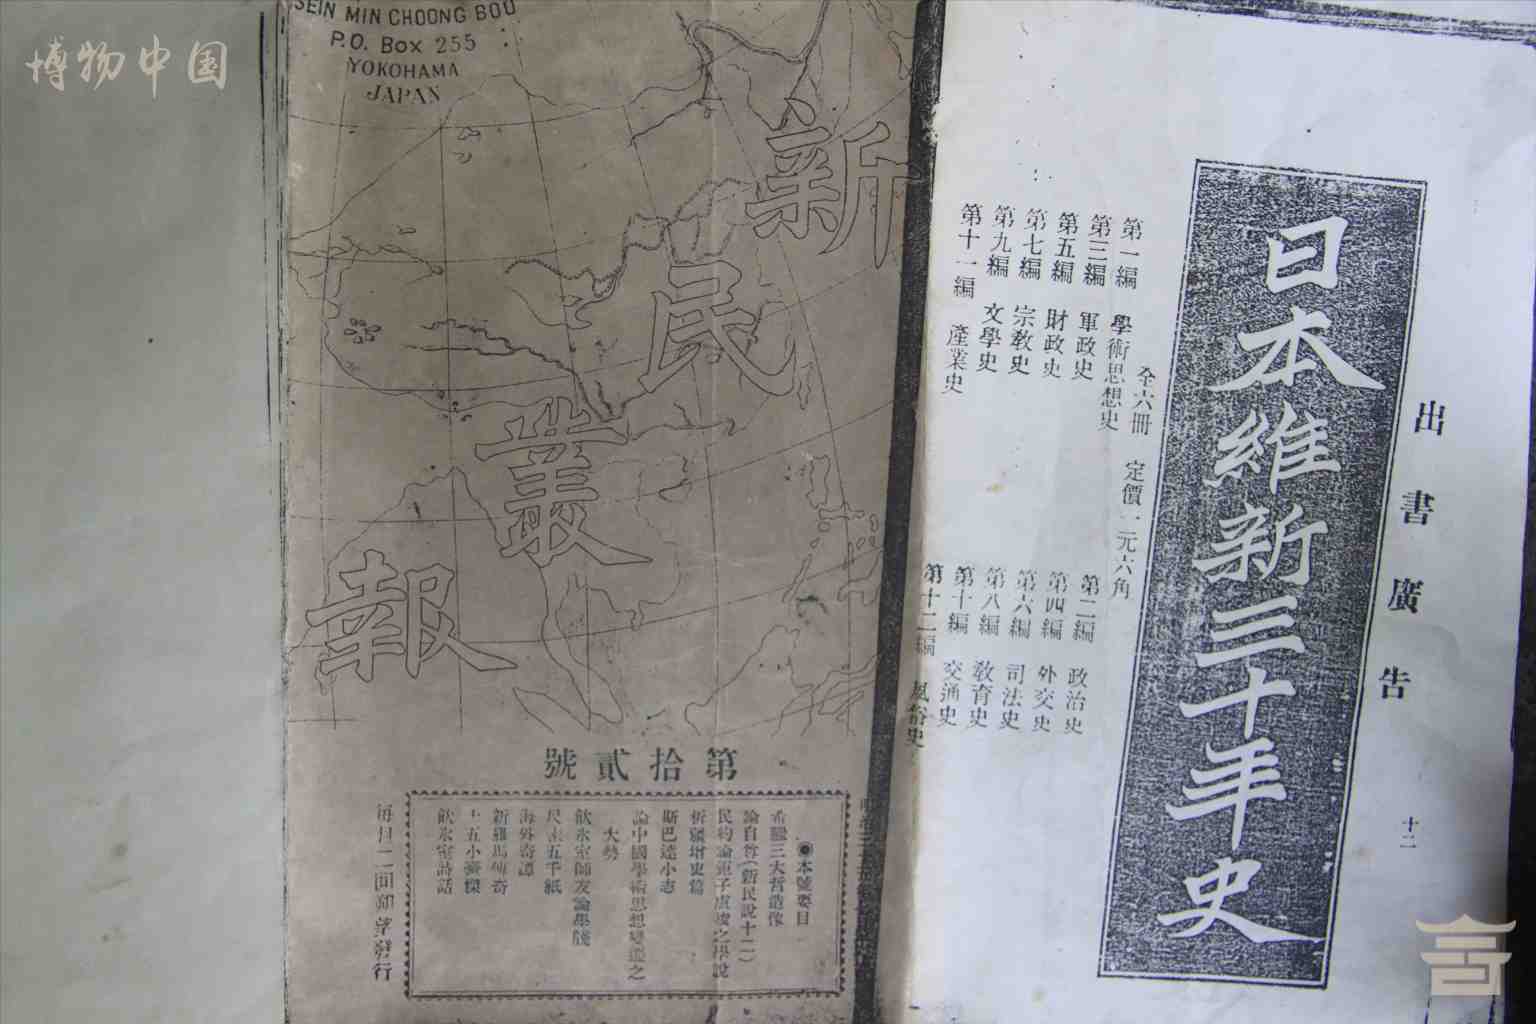 博物中国
SEIN MIN CHOONG BOU
P.O. Box 255
YOKOHAMA
JAPAN
新民叢報
第拾貳號
◉本號要目
希臘三大哲造像
論自尊(新民說十二)
斯巴達小志
論中國學術思想變遷之
大勢
飲氷室師友論學牋
尺素五千紙
海外奇譚
新羅馬傳奇
十五小豪傑
飲氷室詩話
每月二回朔望發行
出書廣告
十二
日本維新三十年史
全六冊 定價一元六角
第一編 學術思想史
第二編 政治史
第三編 軍政史
第四編 外交史
第五編 財政史
第六編 司法史
第七編 宗教史
第八編 教育史
第九編 文學史
第十編 交通史
第十一編 產業史
第十二編 風俗史